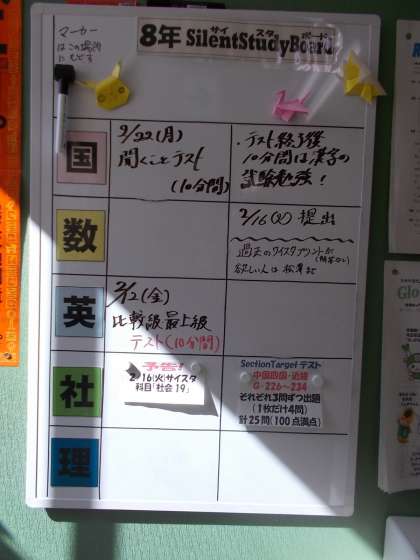 マーカー
はこの場所
にもどす
8年 SilentStudyBoard
サイ スタ ボード
国
2/22(月)
聞くことテスト
(10分間)
・テスト終了後
10分間は漢字の
試験勉強！
数
2/16(火)提出
過去のサイスタプリントが
(解答なし)
欲しい人は
英
2/12(金)
比較級・最上級
テスト(10分間)
社
予告！
2/16(火)サイスタ
科目「社会19」
SectionTarget テスト
中国四国・近畿
G-226～234
それぞれ3問ずつ出題
(1枚だけ4問)
計25問(100点満点)
理
Glo